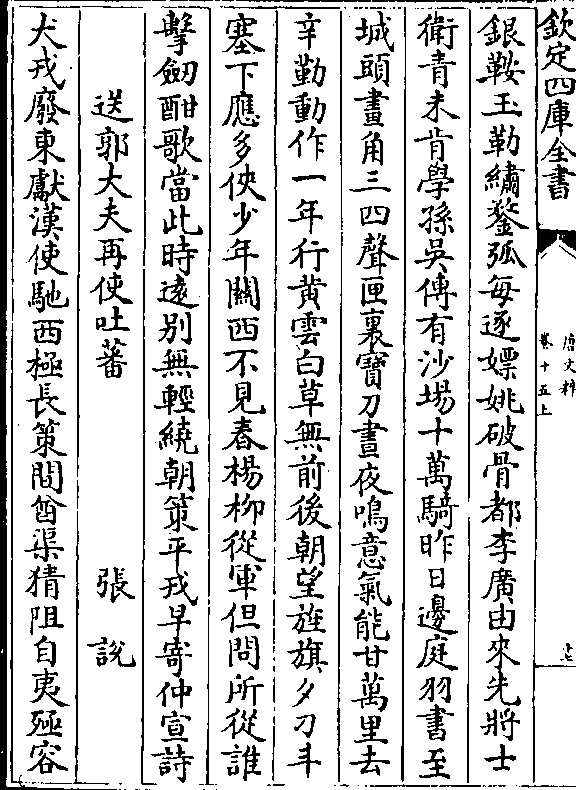 欽定四庫全書
唐文粹
卷十五上
十七
銀鞍玉勒繡蝥弧每逐嫖姚破骨都李廣由來先將士
衛青未肯學孫吳傳有沙場十萬騎昨日邊庭羽書至
城頭畫角三四聲匣裏寶刀晝夜鳴意氣能甘萬里去
辛勤動作一年行黄雲白草無前後朝望旌旗夕刀斗
塞下應多俠少年關西不見春楊柳從軍但問所從誰
擊劒酣歌當此時逺别無輕繞朝策平戎早寄仲宣詩
送郭大夫再使吐蕃
張說
犬戎廢東獻漢使馳西極長策間酋渠猜阻自夷殛容